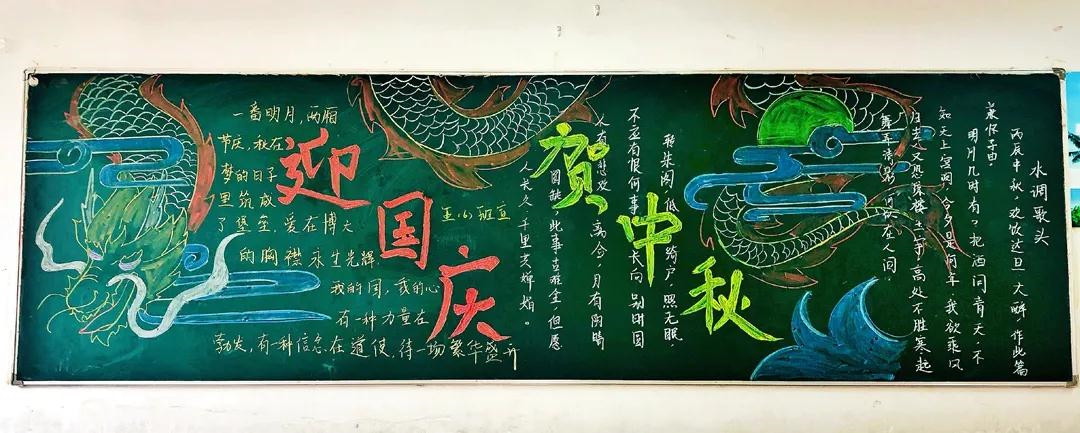 一番明月，两厢
节庆，秋在
梦的日子
里筑成
了堡垒，爱在博大
的胸襟永生光辉
我的国，我的心
有一种力量在
勃发，有一种信念在道使，待一场繁华盛开
迎国庆
贺中秋
水调歌头
丙辰中秋，欢饮达旦，大醉，作此篇
兼怀子由
明月几时有？把酒问青天，不
知天上宫阙，今夕是何年 我欲乘风
归去，又恐琼楼玉宇，高处不胜寒，起
舞弄清影，何似在人间
转朱阁，低绮户，照无眠，
不应有恨，何事长向别时圆
人有悲欢离合，月有阴晴
圆缺，此事古难全 但愿
人长久，千里共婵娟。